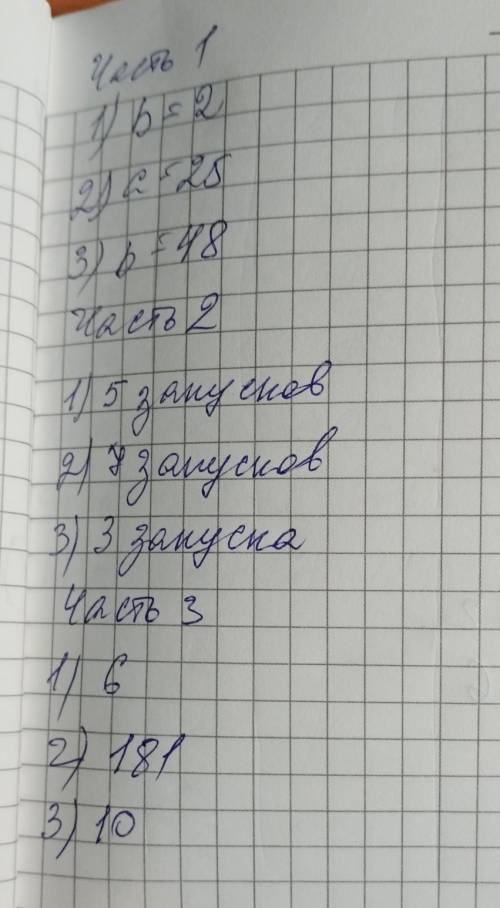 Часть 1
1) b = 2
2) c = 25
3) b = 48
Часть 2
1) 5 запусков
2) 7 запусков
3) 3 запуска
Часть 3
1) 6
2) 181
3) 10